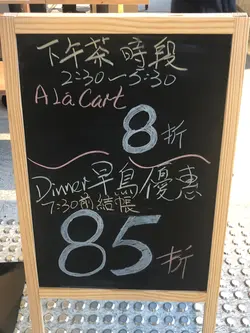 下午茶時段
2:30—5:30
A La Cart
8折
Dinner早鳥優惠
7:30前結帳
85折